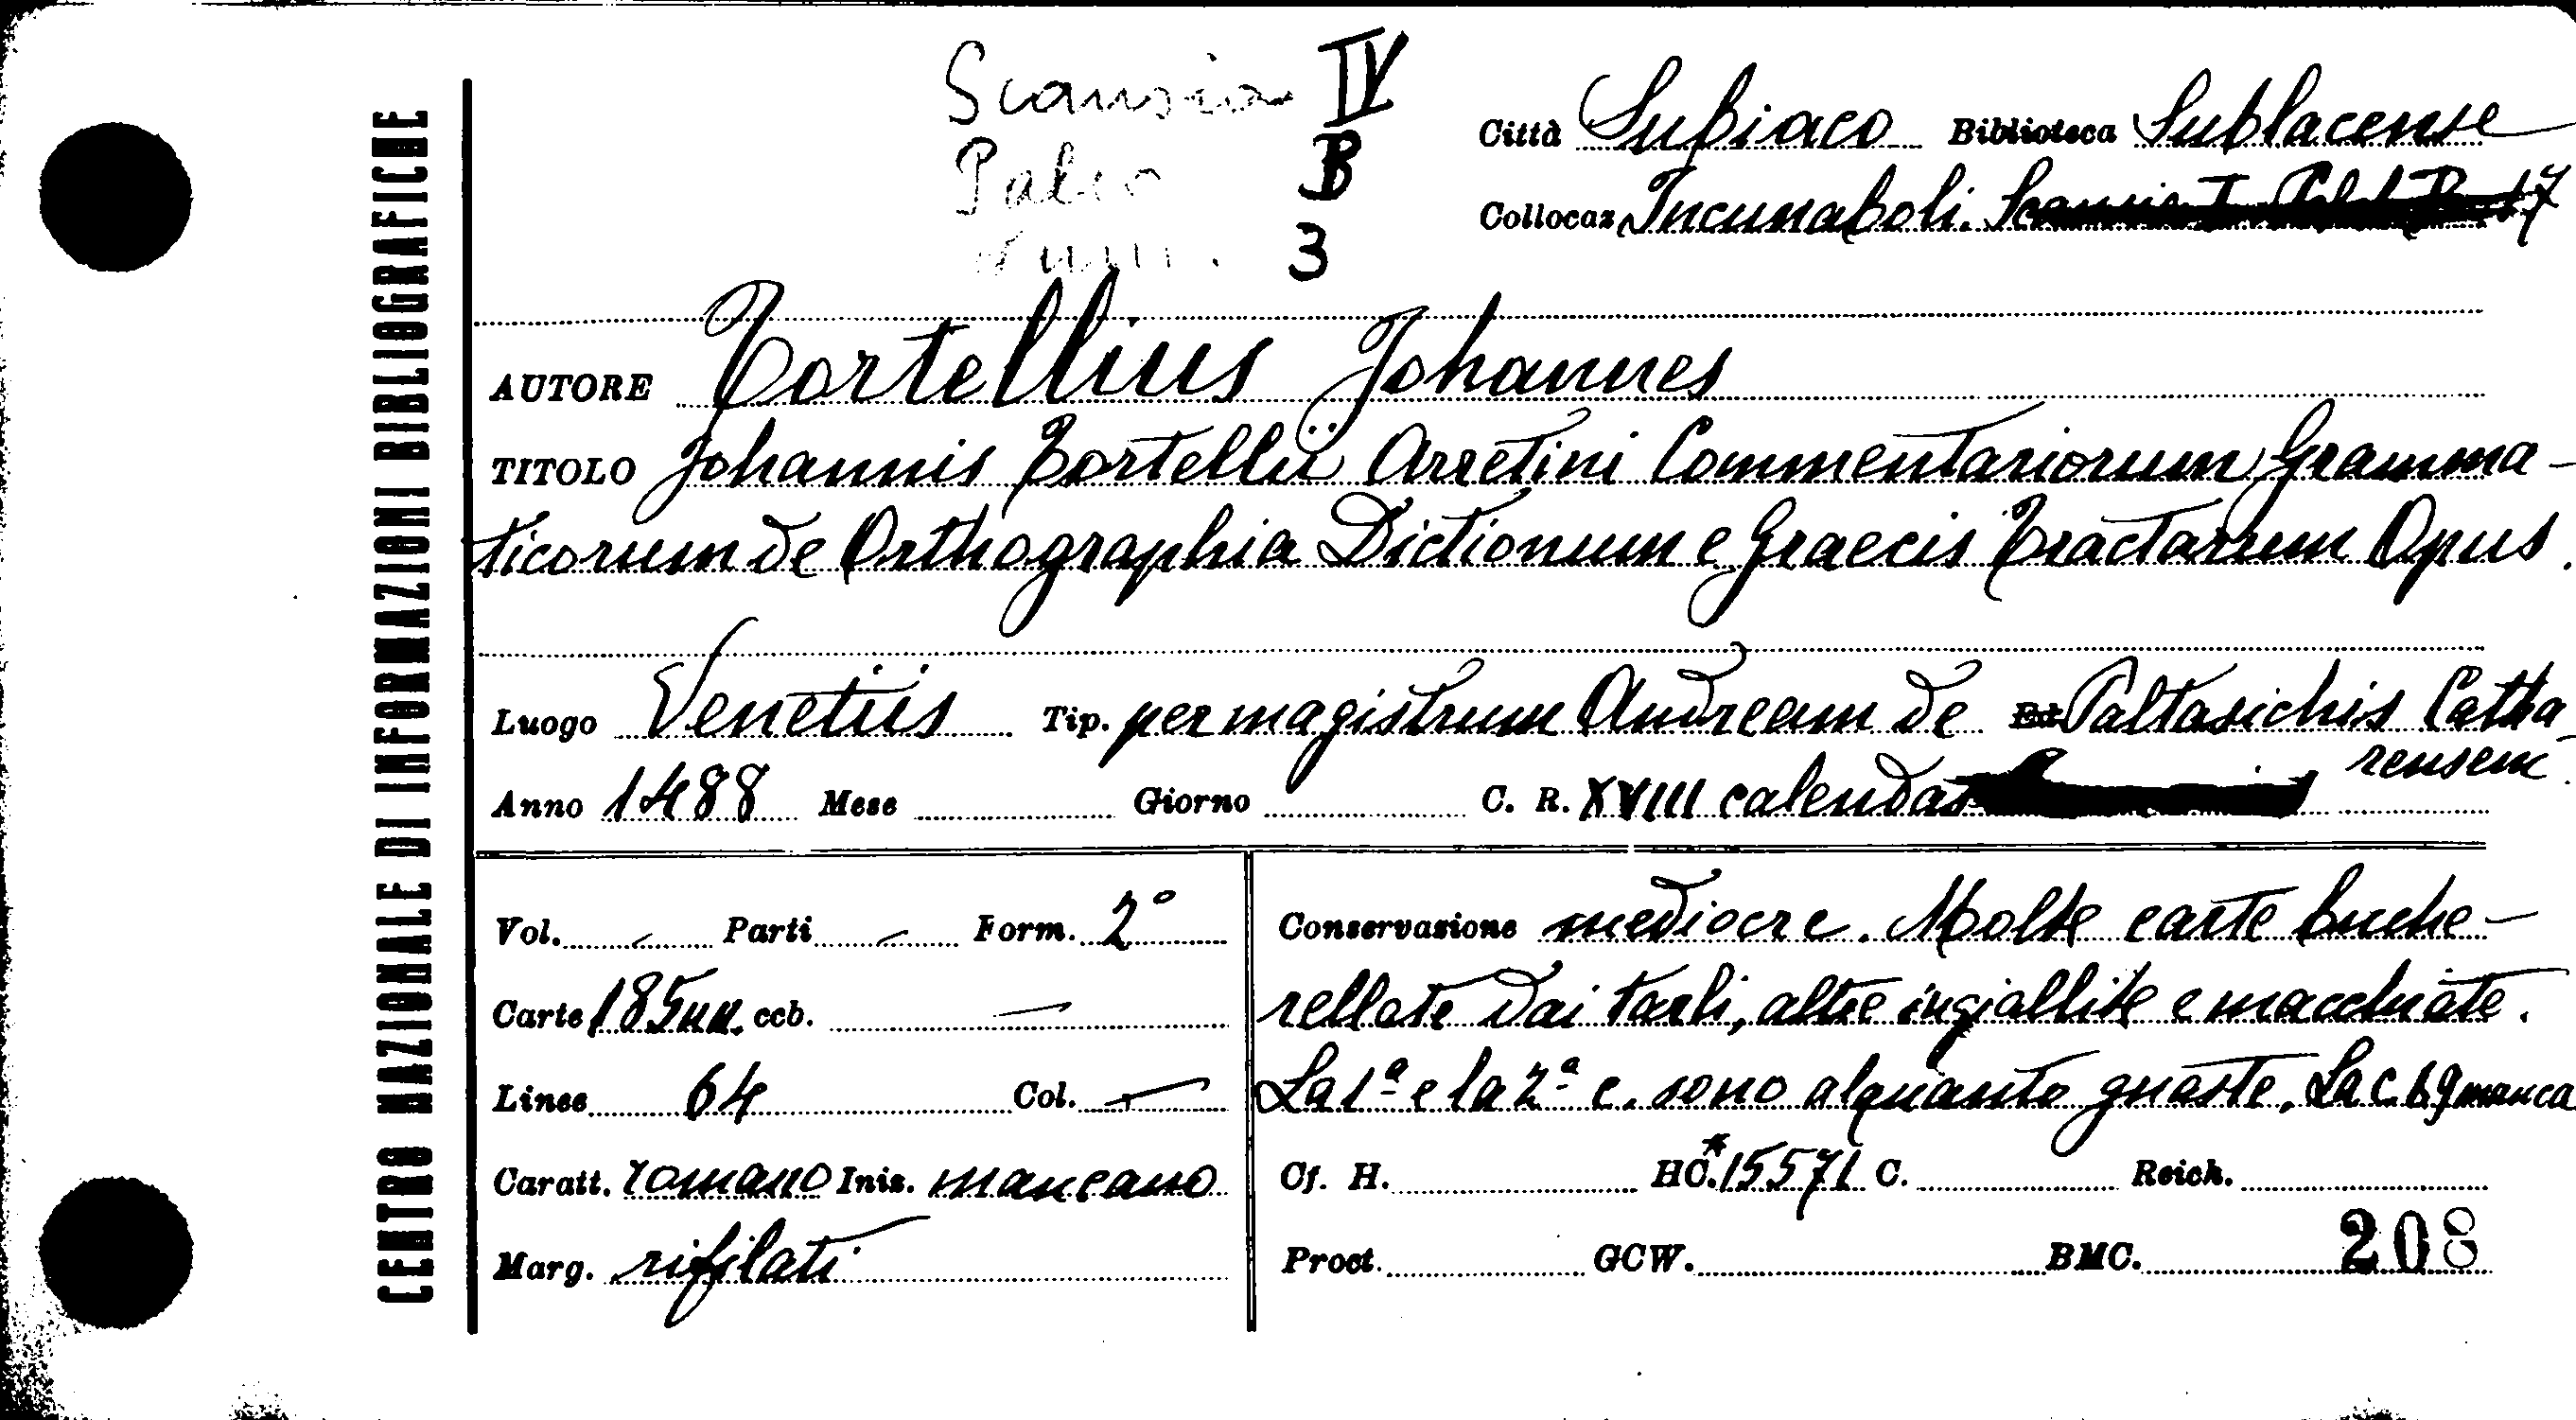 CENTRO NAZIONALE DI INFORMAZIONI BIBLIOGRAFICHE
Scansia IV
Palco B
Num. 3
Città Subiaco Biblioteca Sublacense
Collocaz. Incunaboli. 17
AUTORE Tortellius Johannes
TITOLO Johannis Tortellii Arretini Commentariorum Gramma-
ticorum de Orthographia Dictionum e Graecis Tractarum Opus.
Luogo Venetiis Tip. per magistrum Andream de Ed. Paltasichis Catha
rensem
Anno 1488 Mese Giorno C. R. XVIII calendas
Vol. — Parti — Form. 2°
Carte 185 nn. ccb. —
Linee 64 Col. —
Caratt. romano Iniz. mancano
Marg. rifilati
Conservazione mediocre. Molte carte buche-
rellate dai tarli, altre ingiallite e macchiate.
La 1ª e la 2ª c. sono alquanto guaste. La c. b 9 manca
Cf. H. HC.* 15571 C. Reich.
Proct. GCW. BMC. 208